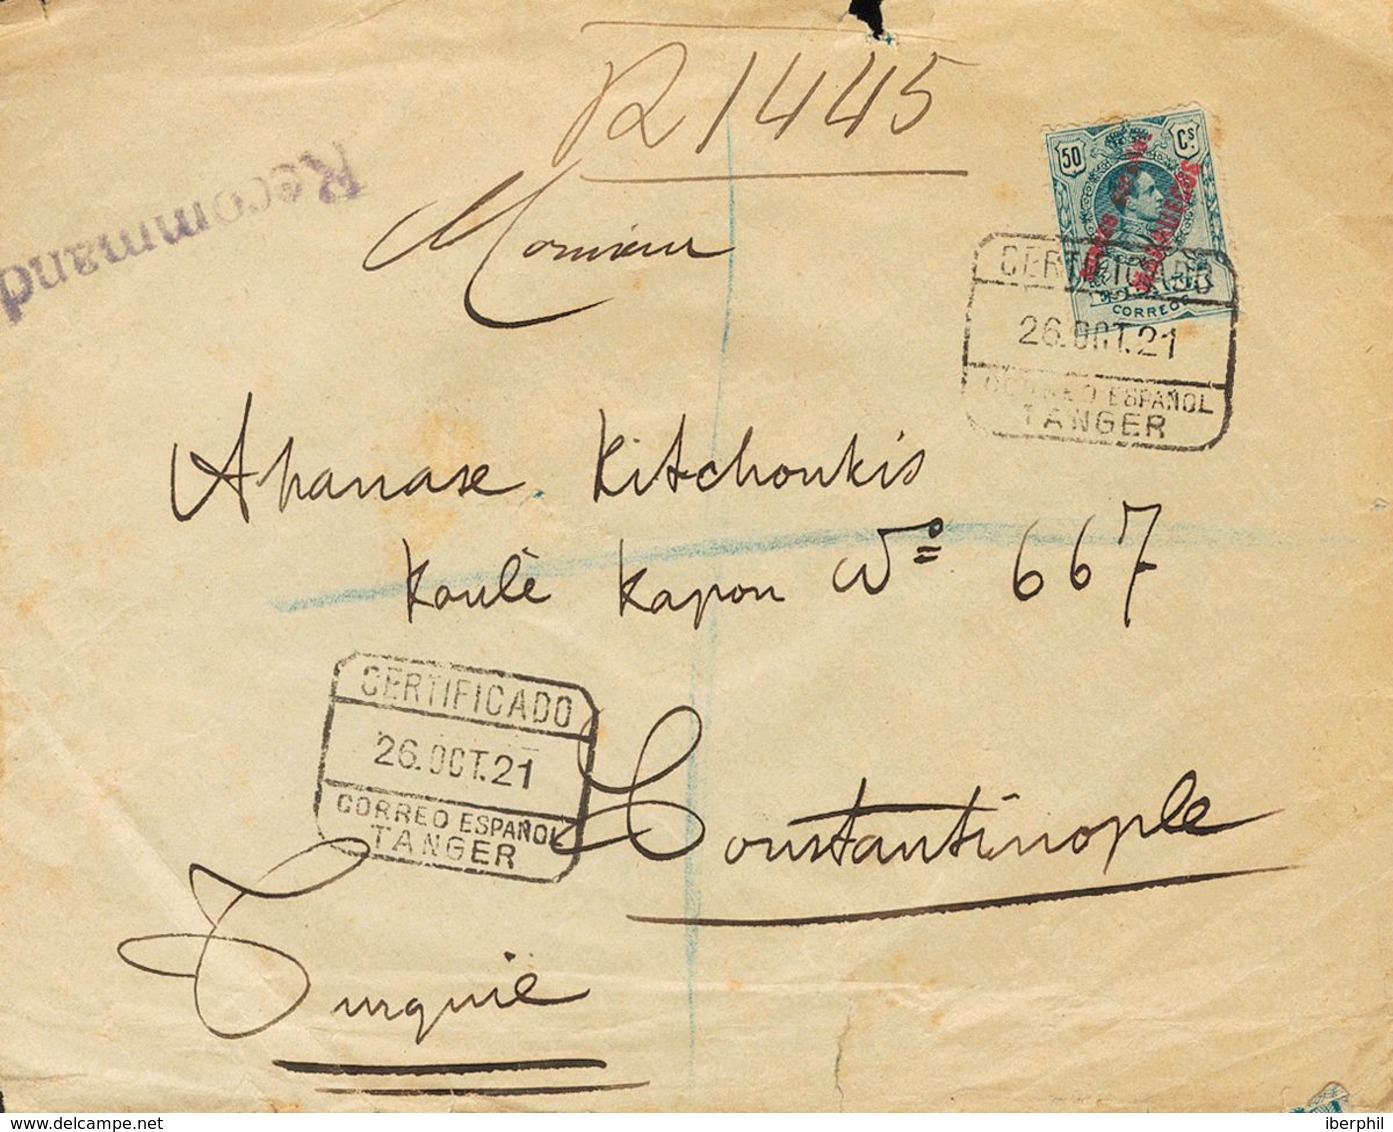 R 1445
Recommand
50 Cs
MARRUECOS
CORREOS
Monsieur
CERTIFICADO
26.OCT.21
CORREO ESPAÑOL
TANGER
Athanase Kitchoukis
Koulè Kapou Nº 667
CERTIFICADO
26.OCT.21
CORREO ESPAÑOL
TANGER
Constantinople
Turquie
delcampe.net
iberphil